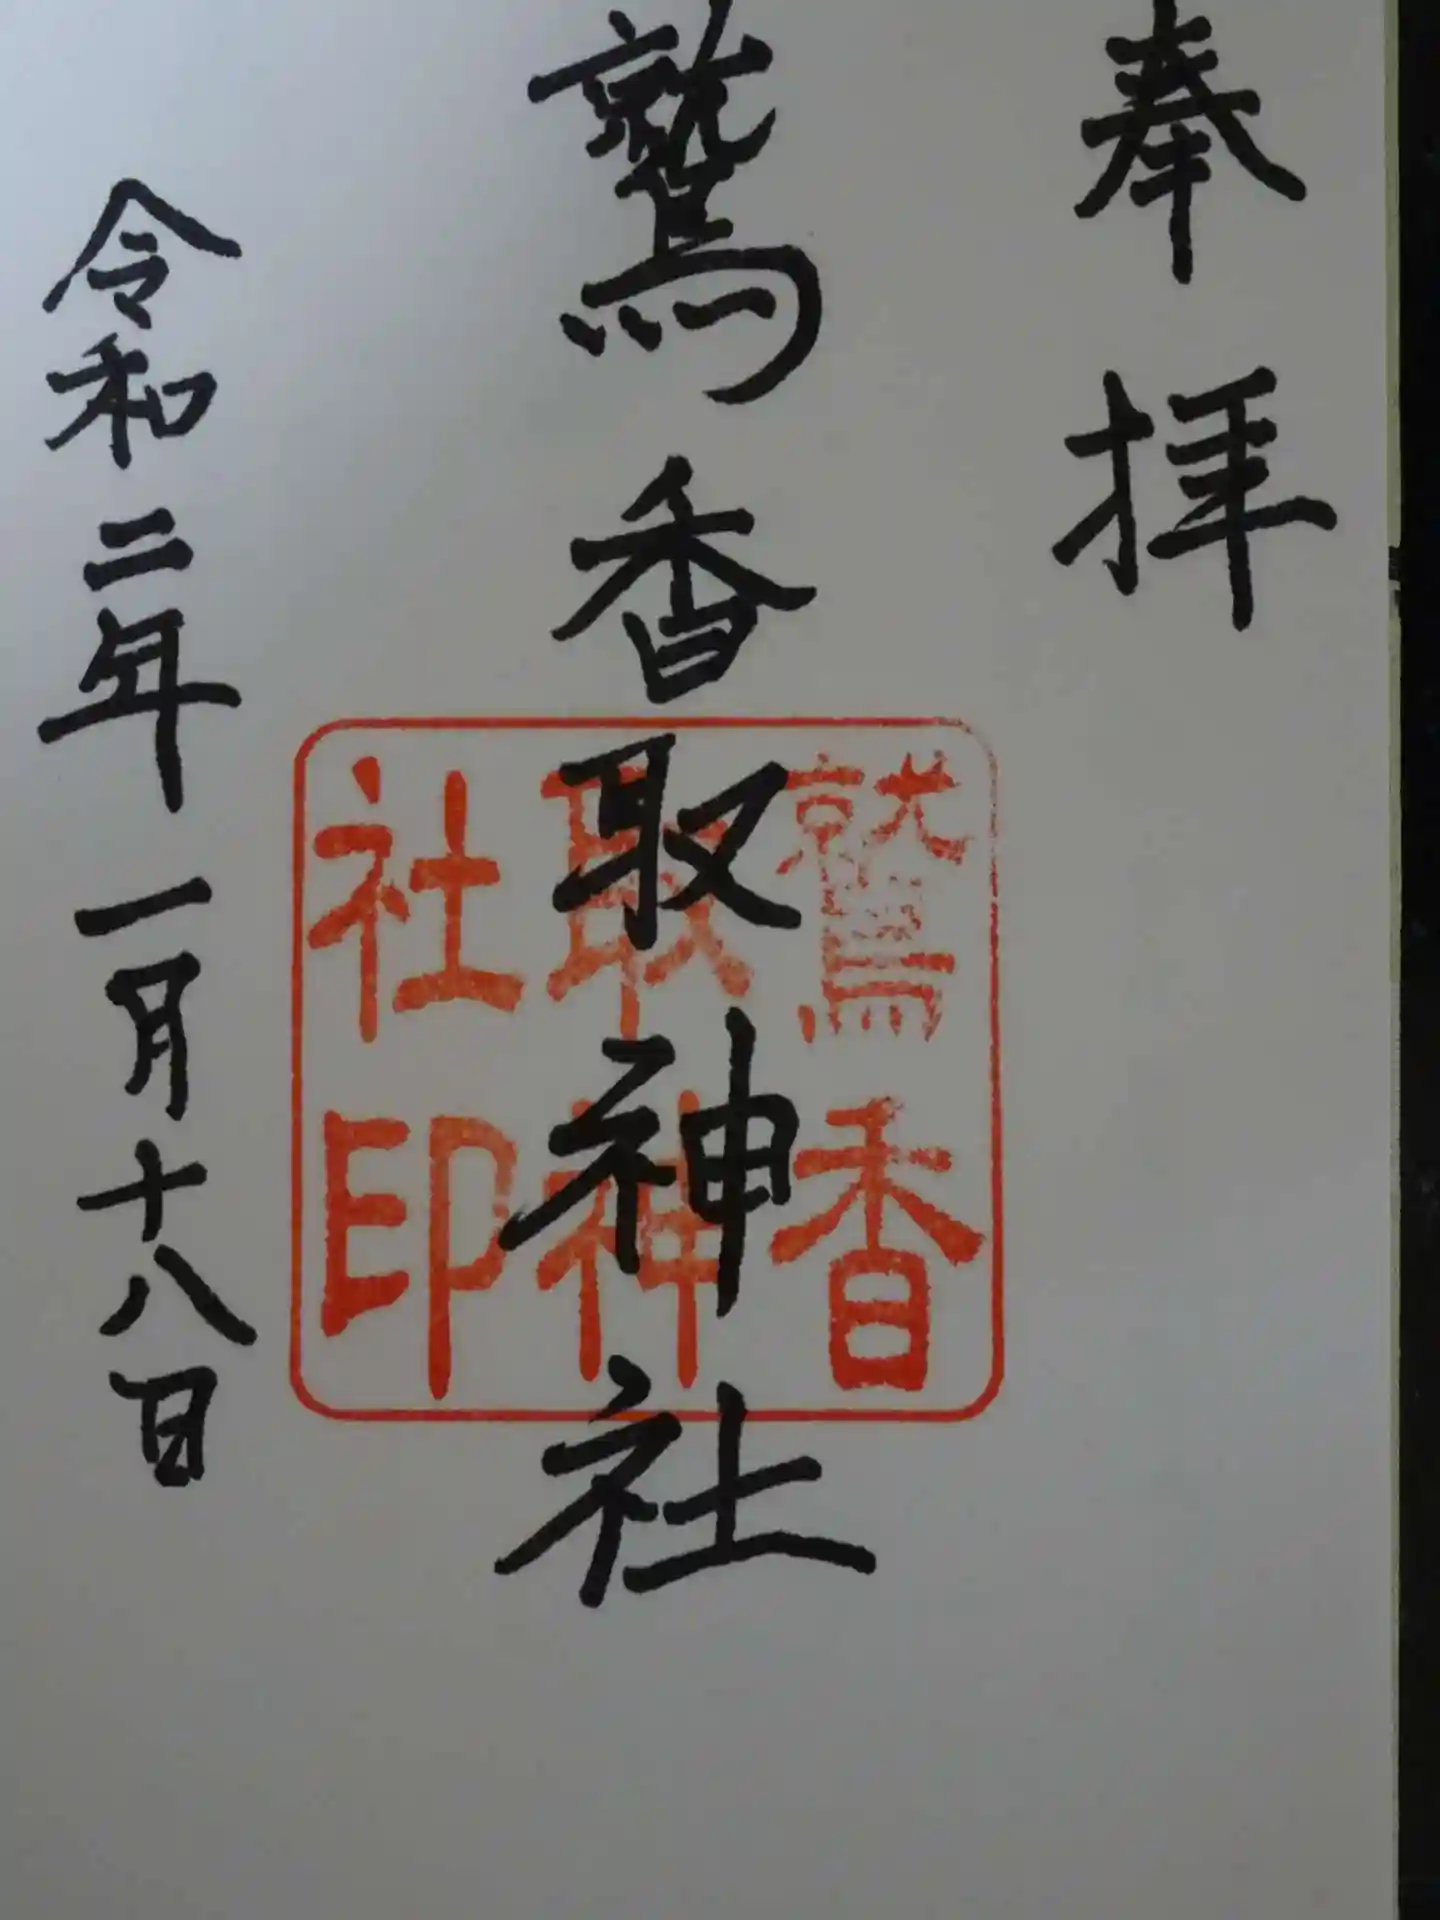 奉拝
鷲香取神社
鷲香
取神
社印
令和二年一月十八日